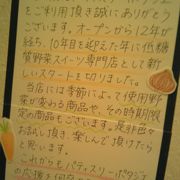 をご利用頂き誠にありがとう
ございます。オープンから12年が
経ち、10年目を迎えた年に低糖
質野菜スイーツ専門店として新
しいスタートを切りました。
当店には季節によって使用野
菜が変わる商品や、その時期限
定の商品もございます。是非色々
お試し頂き、楽しんで頂けたら
と思います。
これからもパティスリーポタジエ
の応援を